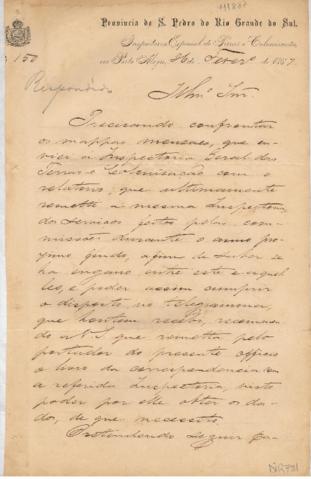 Provincia de S. Pedro do Rio Grande do Sul.
Inspectoria Especial de Terras e Colonisação,
em Porto Alegre, de Fever.º de 1887.
Nº 150
Respondido
Illmº Snr.
Precisando confrontar
os mappas mensaes, que en-
viei a Inspectoria Geral das
Terras e Colonisação com o
relatorio, que ultimamente
remetti a mesma Inspectoria,
dos serviços feitos pelas com-
missões durante o anno pro-
ximo findo, afim de saber se
ha engano entre este e aquel-
les, e poder assim cumprir
o disposto no telegramma,
que hontem recebi, recommen-
do a V. S. que remetta pelo
portador do presente officio
o livro da correspondencia com
a referida Inspectoria, visto
poder por elle obter os da-
dos, de que necessito.
Pretendendo seguir